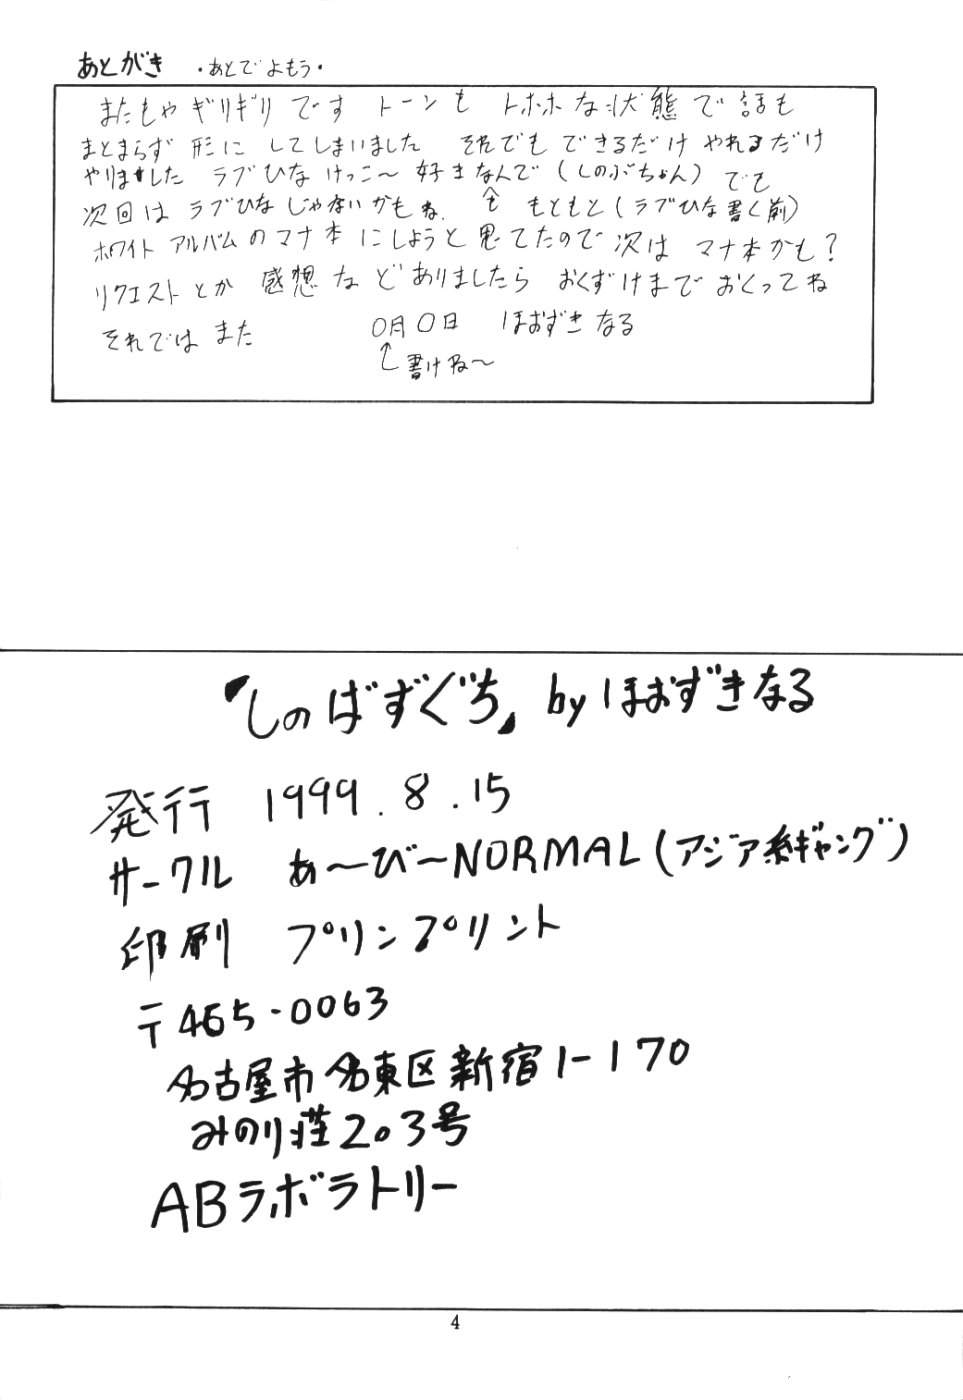 あとがき ・あとでよもう・
またもやギリギリです トーンも トホホな状態で話も
まとまらず 形に してしまいました それでも できるだけ やれるだけ
やりました ラブひな けっこ〜 好きなんで(しのぶちゃん) でも
次回は ラブひな じゃないかもね。 もともと(ラブひな書く前)
ホワイト アルバムのマナ本 にしようと 思てたので 次は マナ本かも?
リクエストとか 感想 など ありましたら おくずけまで おくってね
それでは また 0月0日 ほおずき なる
書けね〜
『しのばずぐち』 by ほおずきなる
発行 1999.8.15
サークル あ〜び〜NORMAL(アジア系ギャング)
印刷 プリンプリント
〒465-0063
名古屋市名東区新宿1-170
みのり荘203号
ABラボラトリー
4